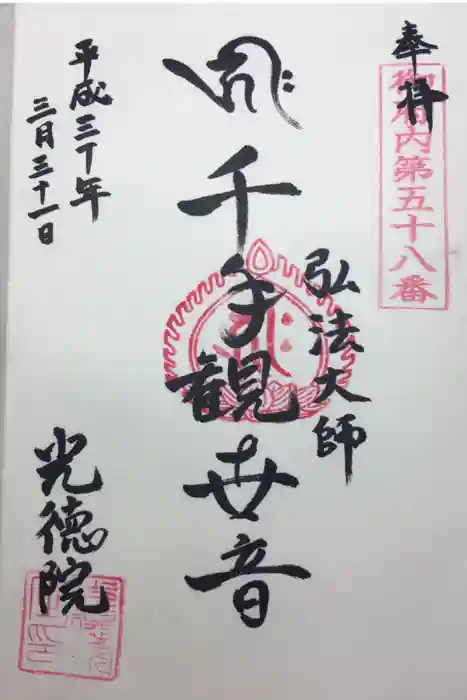 奉拝
御府内第五十八番
弘法大師
千手観世音
平成三十年
三月三十一日
光徳院